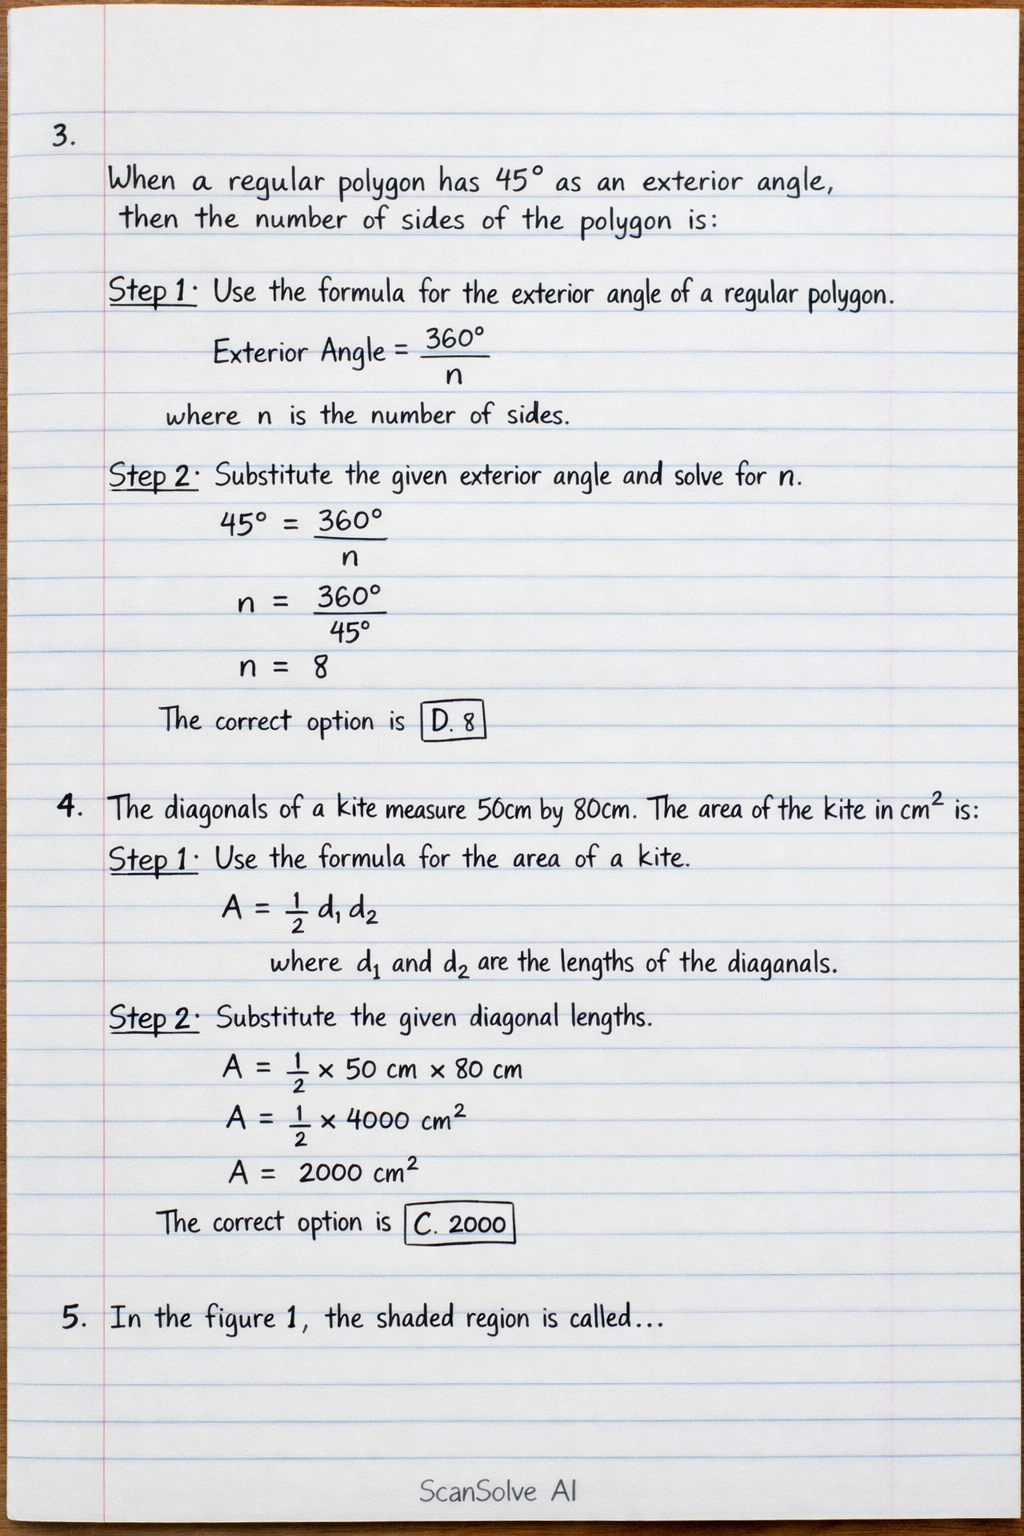 3.
When a regular polygon has 45° as an exterior angle,
then the number of sides of the polygon is:
Step 1· Use the formula for the exterior angle of a regular polygon.
Exterior Angle = 360°/n
where n is the number of sides.
Step 2· Substitute the given exterior angle and solve for n.
45° = 360°/n
n = 360°/45°
n = 8
The correct option is D. 8
4. The diagonals of a kite measure 50cm by 80cm. The area of the kite in cm² is:
Step 1· Use the formula for the area of a kite.
A = 1/2 d₁ d₂
where d₁ and d₂ are the lengths of the diaganals.
Step 2· Substitute the given diagonal lengths.
A = 1/2 × 50 cm × 80 cm
A = 1/2 × 4000 cm²
A = 2000 cm²
The correct option is C. 2000
5. In the figure 1, the shaded region is called...
ScanSolve AI